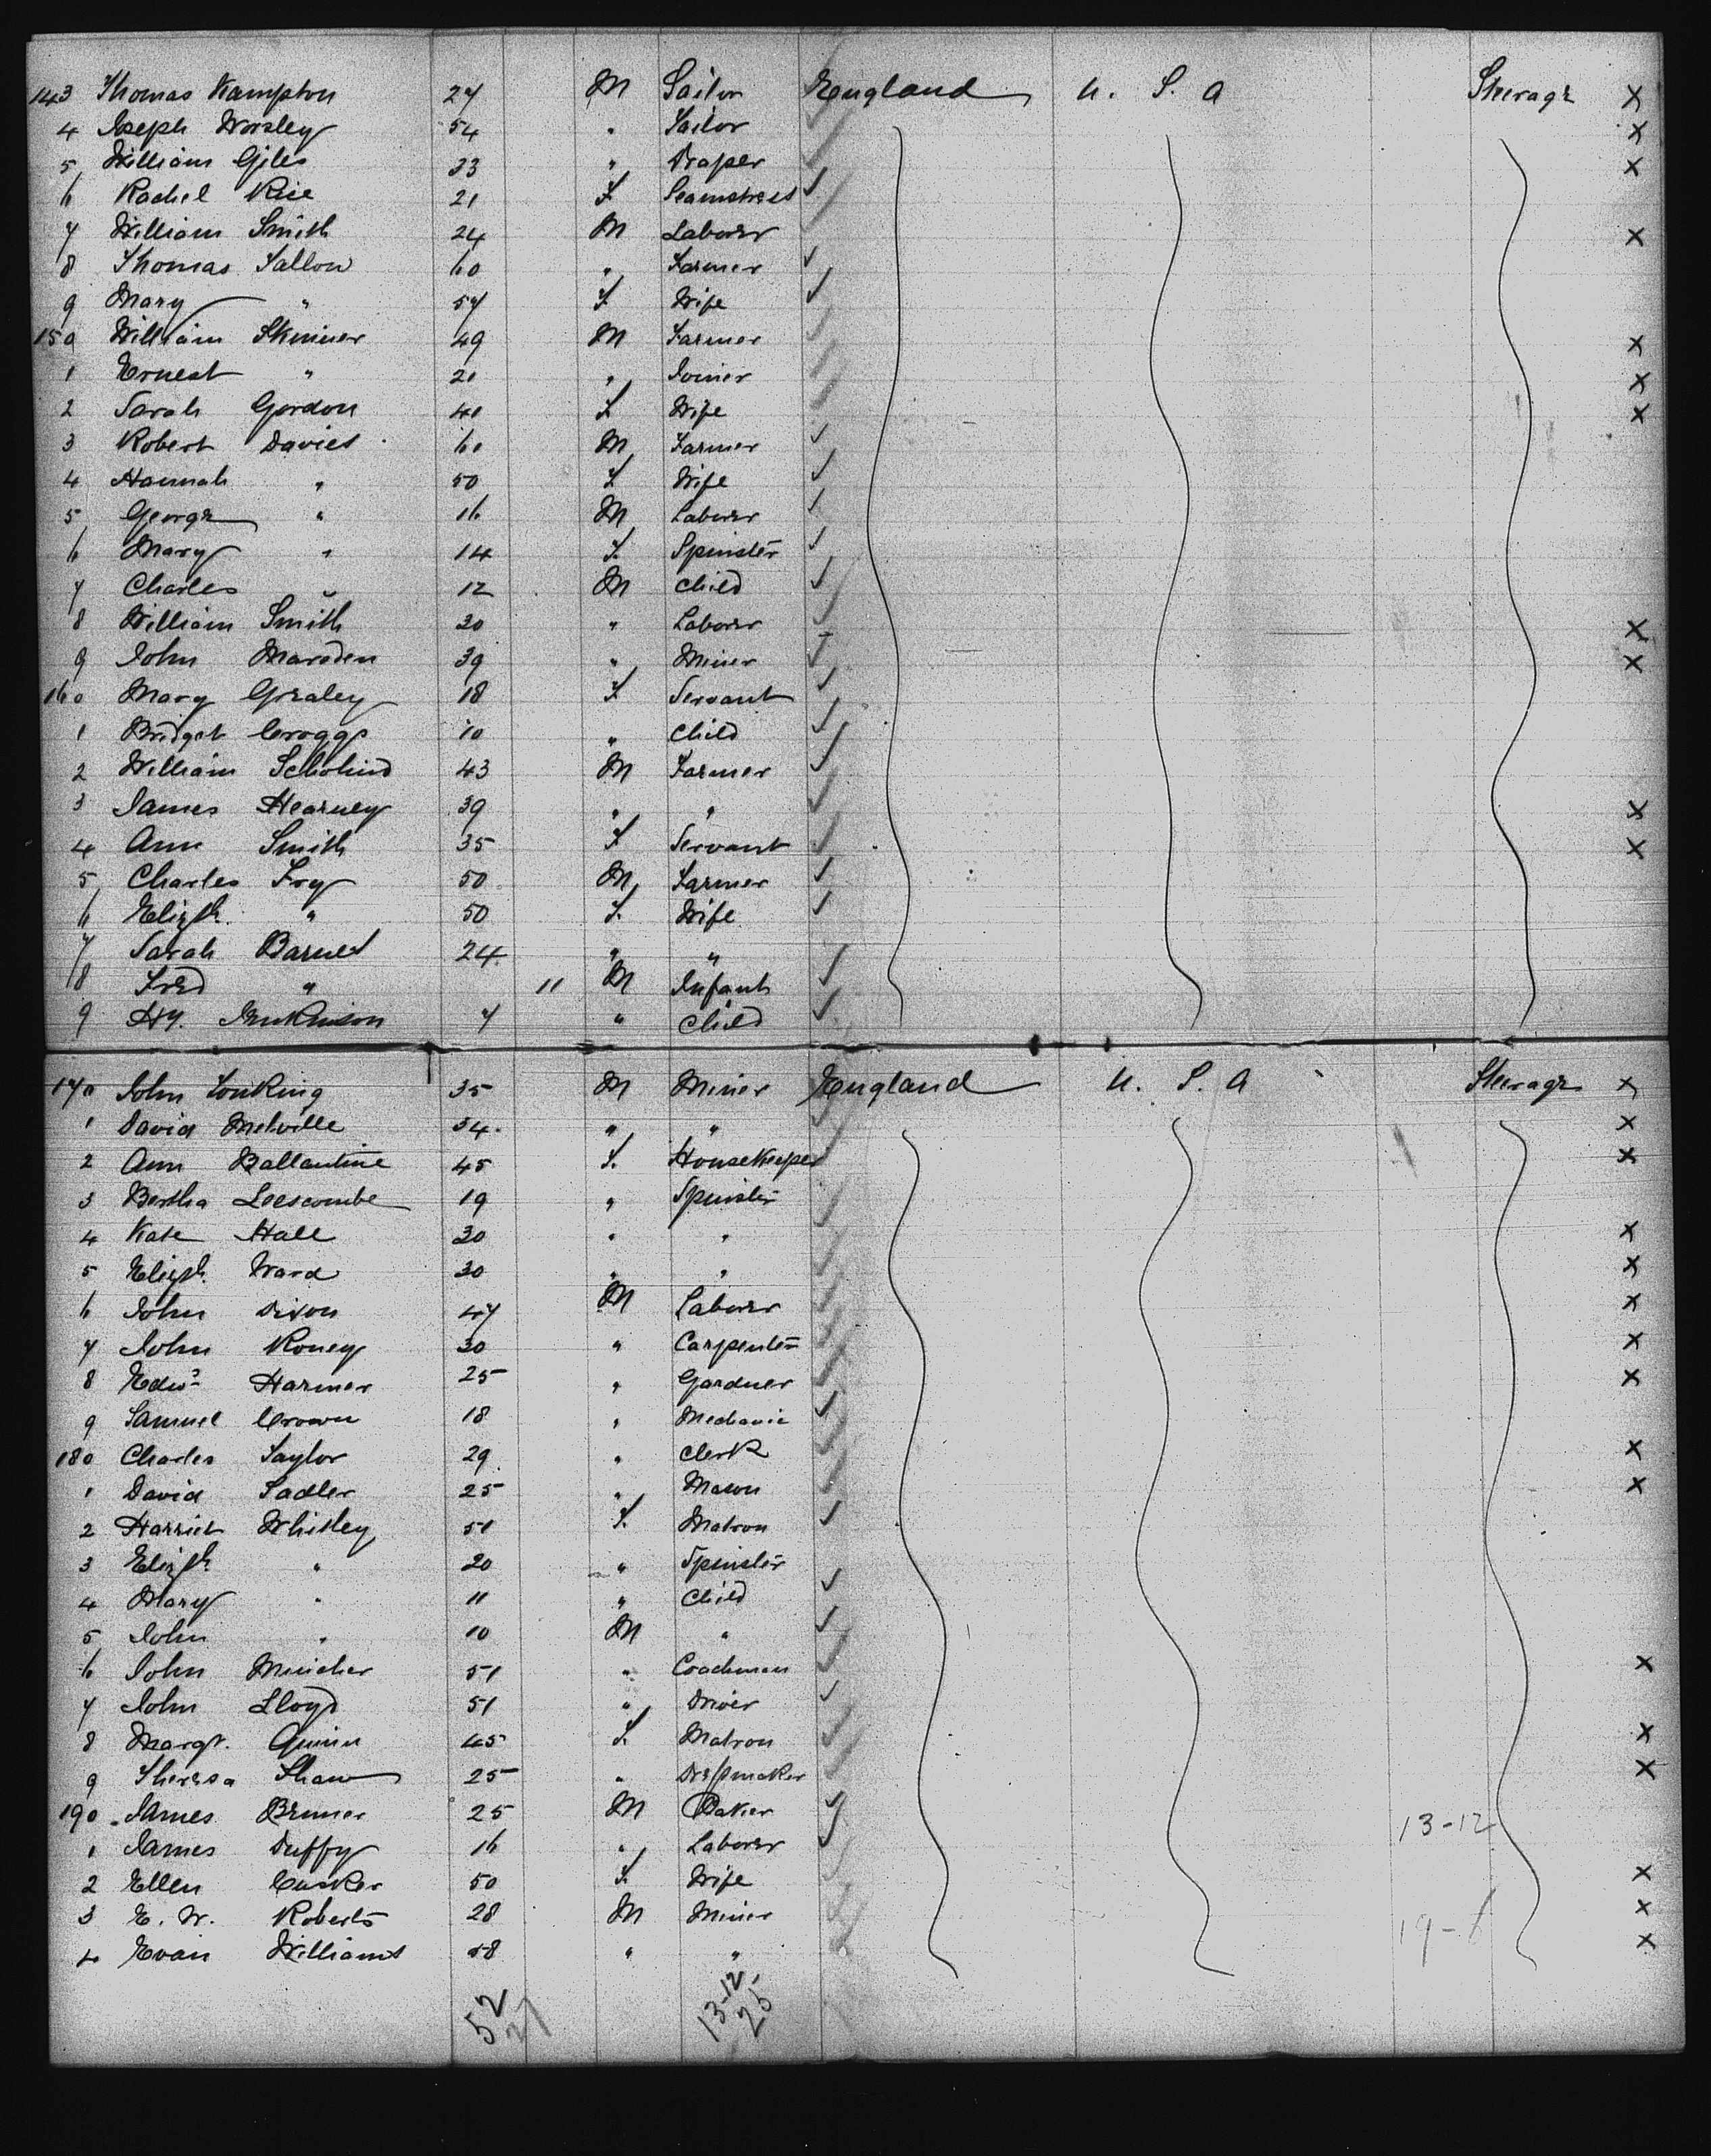 143 Thomas Kampton 27 M Sailor England U. S. A Steerage X
4 Joseph Worsley 54 " Sailor X
5 William Giles 33 " Draper X
6 Rachel Rice 21 F Seamstress
7 William Smith 24 M Laborer X
8 Thomas Fallow 60 " Farmer
9 Mary " 57 F Wife
150 William Skinner 49 M Farmer X
1 Ernest " 21 " Joiner X
2 Sarah Gordon 40 F Wife X
3 Robert Davies 60 M Farmer
4 Hannah " 50 F Wife
5 George " 16 M Laborer
6 Mary " 14 F Spinster
7 Charles " 12 M Child
8 William Smith 30 " Laborer X
9 John Marsden 39 " Miner X
160 Mary Graley 18 F Servant
1 Bridget Croggs 10 " Child
2 William 43 M Farmer
3 James Hearney 39 " " X
4 Ann Smith 35 F Servant X
5 Charles Fry 50 M Farmer
6 Elizth " 50 F. Wife
7 Sarah Barnet 24 " "
8 Fred " 11 M Infant
9 Hy. Jenkinson 7 " Child
170 John 35 M Miner England U. S. A Steerage X
1 David Melville 34 " " X
2 Ann Ballantine 45 F. Housekeeper X
3 Bertha Leescombe 19 " Spinster
4 Kate Hall 30 " " X
5 Elizth Ward 30 " " X
6 John Dixon 47 M Laborer X
7 John Roney 30 " Carpenter X
8 Edwd Harmer 25 " Gardner X
9 Samuel Crown 18 " Mechanic
180 Charles Taylor 29 " Clerk X
1 David Sadler 25 " Mason X
2 Harriet Whitley 51 F. Matron
3 Elizth " 20 " Spinster
4 Mary " 11 " Child
5 John " 10 M "
6 John Mincher 51 " Coachman X
7 John Lloyd 51 " Driver
8 Margt. Quinn 45 F. Matron X
9 Theresa Shaw 25 " Dressmaker X
190 James Bruner 25 M Baker 13-12
1 James Duffy 16 " Laborer
2 Ellen Cusker 50 F. Wife X
3 E. W. Roberts 28 M Miner X
4 Evan Williams 58 " " X
52
27
13-12
25